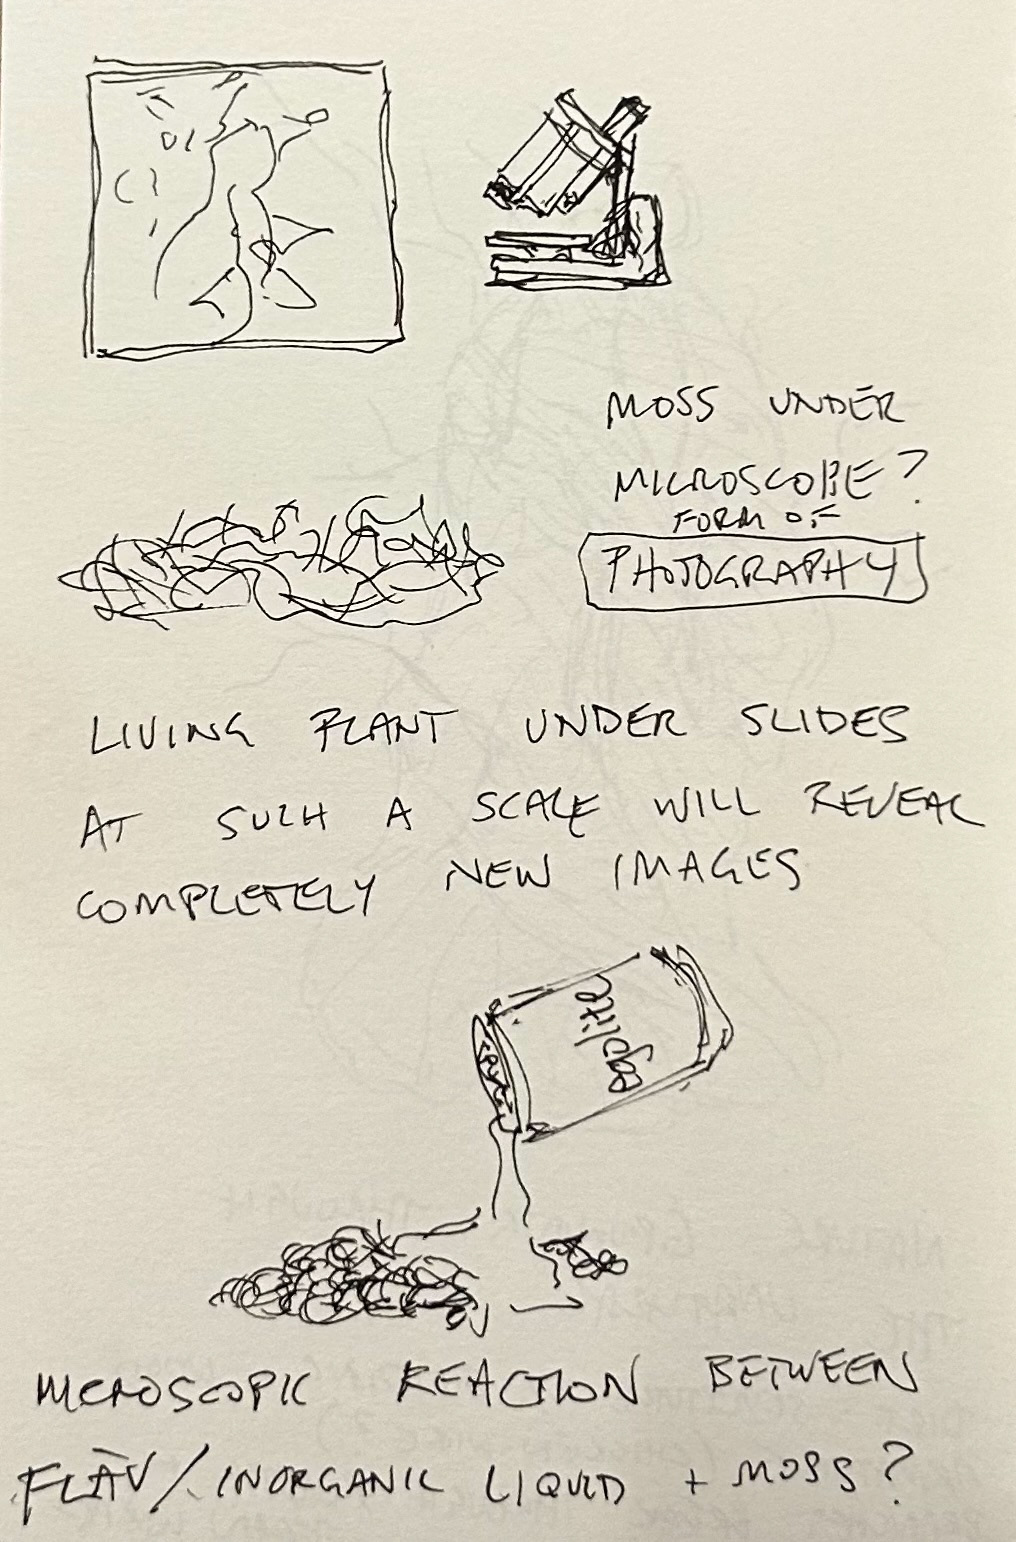 MOSS UNDER
MICROSCOPE?
FORM OF
PHOTOGRAPHY
LIVING PLANT UNDER SLIDES
AT SUCH A SCALE WILL REVEAL
COMPLETELY NEW IMAGES
MICROSCOPIC REACTION BETWEEN
/ INORGANIC LIQUID + MOSS?